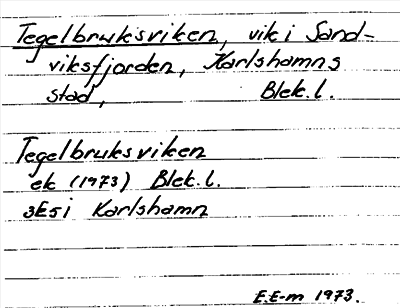 Tegelbruksviken, vik i Sand-
viksfjorden, Karlshamns
stad, Blek. l.
Tegelbruksviken
ek (1973) Blek. l.
3E5i Karlshamn
E.E-m 1973.